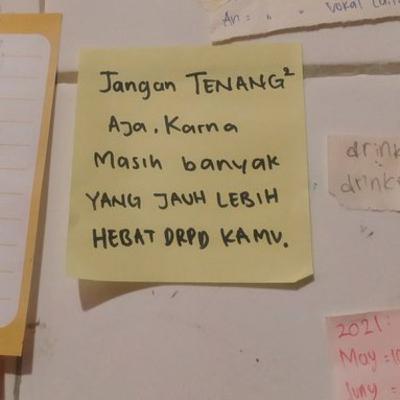 An :
vokal
Jangan TENANG²
Aja. Karna
Masih banyak
YANG JAUH LEBIH
HEBAT DRPD KAMU.
drink
drinke
2021:
May =10
Juny =